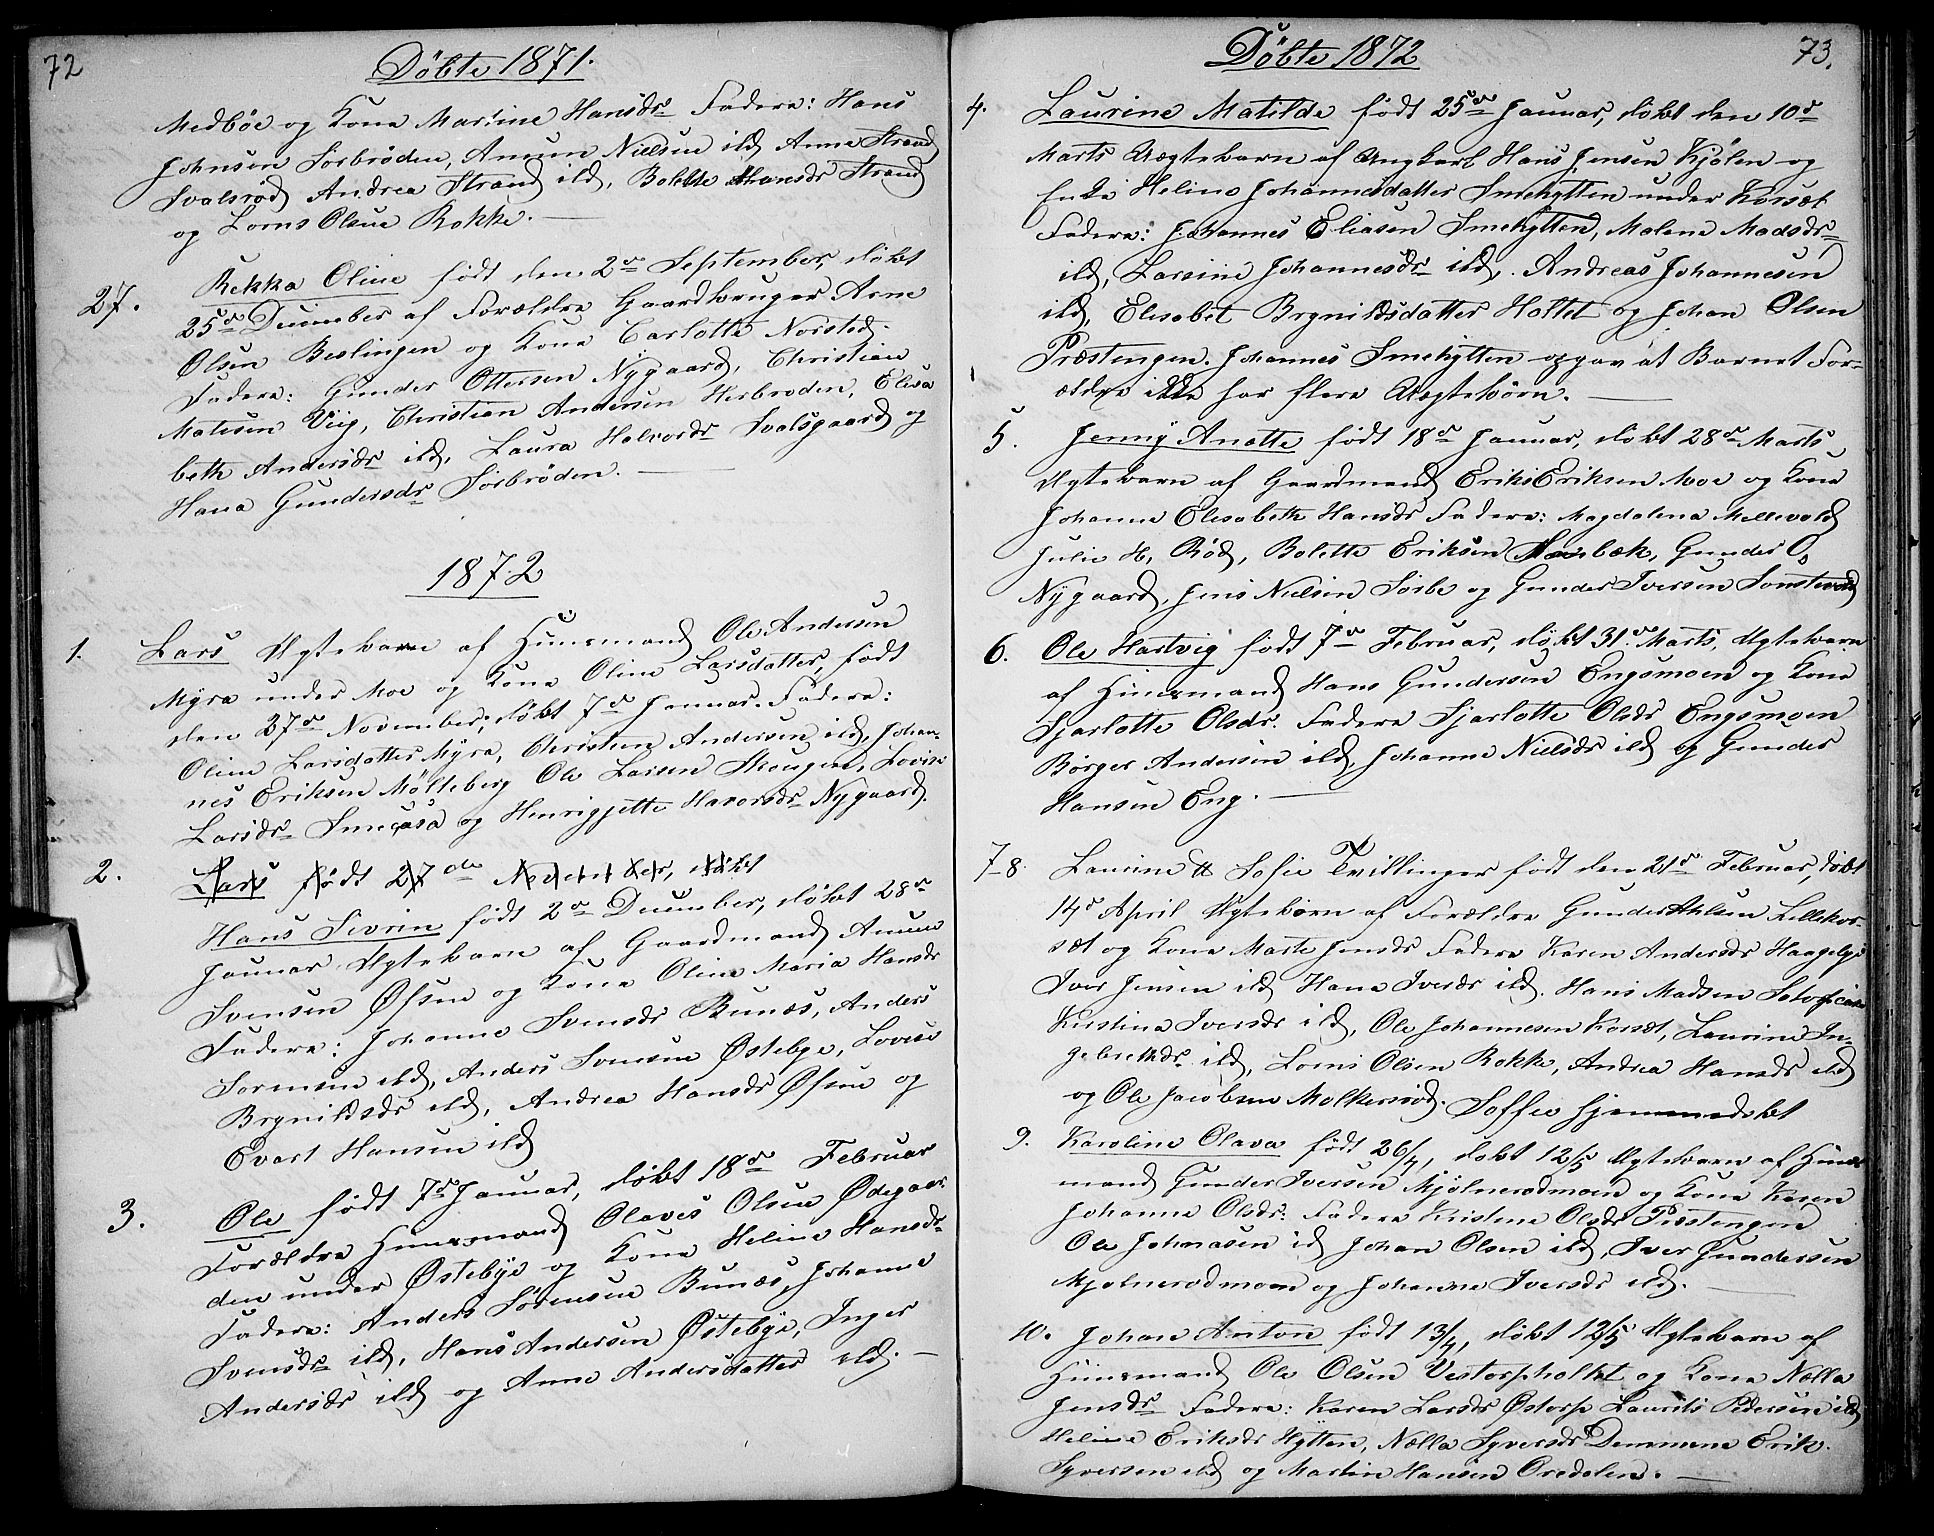 72
Döbte 1871.
Medböe og Kone Martine Hansdr Fadere: Hans
Johnsen Sörbröden, Amun Nielsen ibd, Anne Strand
Svalsröd Andrea Strand ibd, Bolette Hansdr Strand
og Lorns Olsen Rokke.
27. Rekka Oline födt den 2den September, döbt
25de December af Forældre Gaardbruger Arne
Olsen Beslingen og Kone Carlotte Norsted.
Fadere: Gunder Ottersen Nygaard, Christian
Matesen Viig, Christian Andersen Herbroden, Elisa
beth Andersdr ibd, Laura Halvordr Svalsgaard og
Hana Gundersdr Sörbröden.
1872
1. Lars Ægtebarn af Huusmand Ole Andersen
Myra under Moe og Kone Oline Larsdatter, födt
den 27de November, döbt 7de Januar. Fadere:
Oline Larsdatter Myra, Christian Andersen ibd, Johan-
nes Eriksen Mölteberg Ole Larsen Skougen, Lovise
Larsdr Smeaasa og Henrigjette Havorsdr Nygaard.
2. Lars födt 27de November, döbt
Hans Sivrin födt 2den December, döbt 28de
Januar Ægtebarn af Gaardmand Amun
Svensen Øfsen og Kone Oline Maria Hansdr
Fadere: Johanne Svensdr Bunæs, Anders
Sörensen ibd, Anders Svensen Østebye, Lovise
Brynildsdr ibd, Andrea Hansdr Øfsen og
Evart Hansen ibd
3. Ole födt 7de Januar, döbt 18de Februar
Forældre Huusmand Olaves Olsen Ødegaar-
den under Østebye og Kone Heline Hansdr
Fadere: Anders Sörensen Bunæs, Johanne
Svensdr ibd, Hans Andersen Østebye, Inger
Andersdr ibd og Anne Andersdatter ibd.
73.
Döbte 1872
4. Laurine Matilde födt 25de Januar, döbt den 10de
Marts Uægtebarn af Ungkarl Hans Jensen Kjölen og
Enke Heline Johannesdatter Smehytten under Korsæt
Fadere: Johannes Eliasen Smehytten, Malene Madsdr
ibd, Larsine Johannesdr ibd, Andreas Johannesen
ibd, Elisabet Brynildsdatter Holtet og Johan Olsen
Præstengen. Johannes Smehytten opgav at Barnet For-
ældre ikke har flere Uægtebörn.
5. Jenny Anette födt 18de Januar, döbt 28de Marts
Ægtebarn af Gaardmand Eriks Eriksen Moe og Kone
Johanne Elisabeth Hansdr Fadere: Magdalena Mellevold
Julie H. Röd, Bolette Eriksen Nærbæk, Gunder O.
Nygaard, Jens Nielsen Sörbe og Gunder Iversen Sonstevold
6. Ole Hartvig födt 7de Februar, döbt 31de Marts, Ægtebarn
af Huusmand Hans Gundersen Engsmoen og Kone
Sjarlotte Olsdr. Fadere Sjarlotte Olsdr Engsmoen
Börger Andersen ibd, Johanne Nielsdr ibd og Gunder
Hansen Eng.
7-8. Laurine & Sofie Tvillinger födt den 21de Februar, döbt
14de April Ægtebörn af Forældre Gunder Ahlsen Lillekor-
sæt og Kone Marte Jensdr Fadere Karen Andersdr Haagelye
Iver Jensen ibd Hana Iversdr ibd. Hans Madsen
Kristina Iversdr ibd, Ole Johannesen Korsæt, Laurine In-
gebrethdr ibd, Lorns Olsen Rokke, Andrea Hansdr ibd
og Ole Jacobsen Molkersröd. Soffie hjemmedöbt
9. Karoline Olava födt 26/4, döbt 12/5 Ægtebarn af Huus
mand Gunder Iversen Mjölnerodmoen og Kone Karen
Johanne Olsdr. Fadere Kristine Olsdr Præstengen
Ole Johnasen ibd Johan Olsen ibd, Iver Gundersen
Mjolnerodmoen og Johanne Iversdr ibd.
10. Johan Anton födt 13/4, döbt 12/5 Ægtebarn af
Huusmand Ole Olsen Vestorpholtet og Kone Nælla
Jensdr Fadere: Karen Larsdr Østorp Laurits Pedersen ibd
Heline Eriksdr Hytten, Nælla Syversdr Demmene Erik
Syversen ibd og Martin Hansen Oredalen.